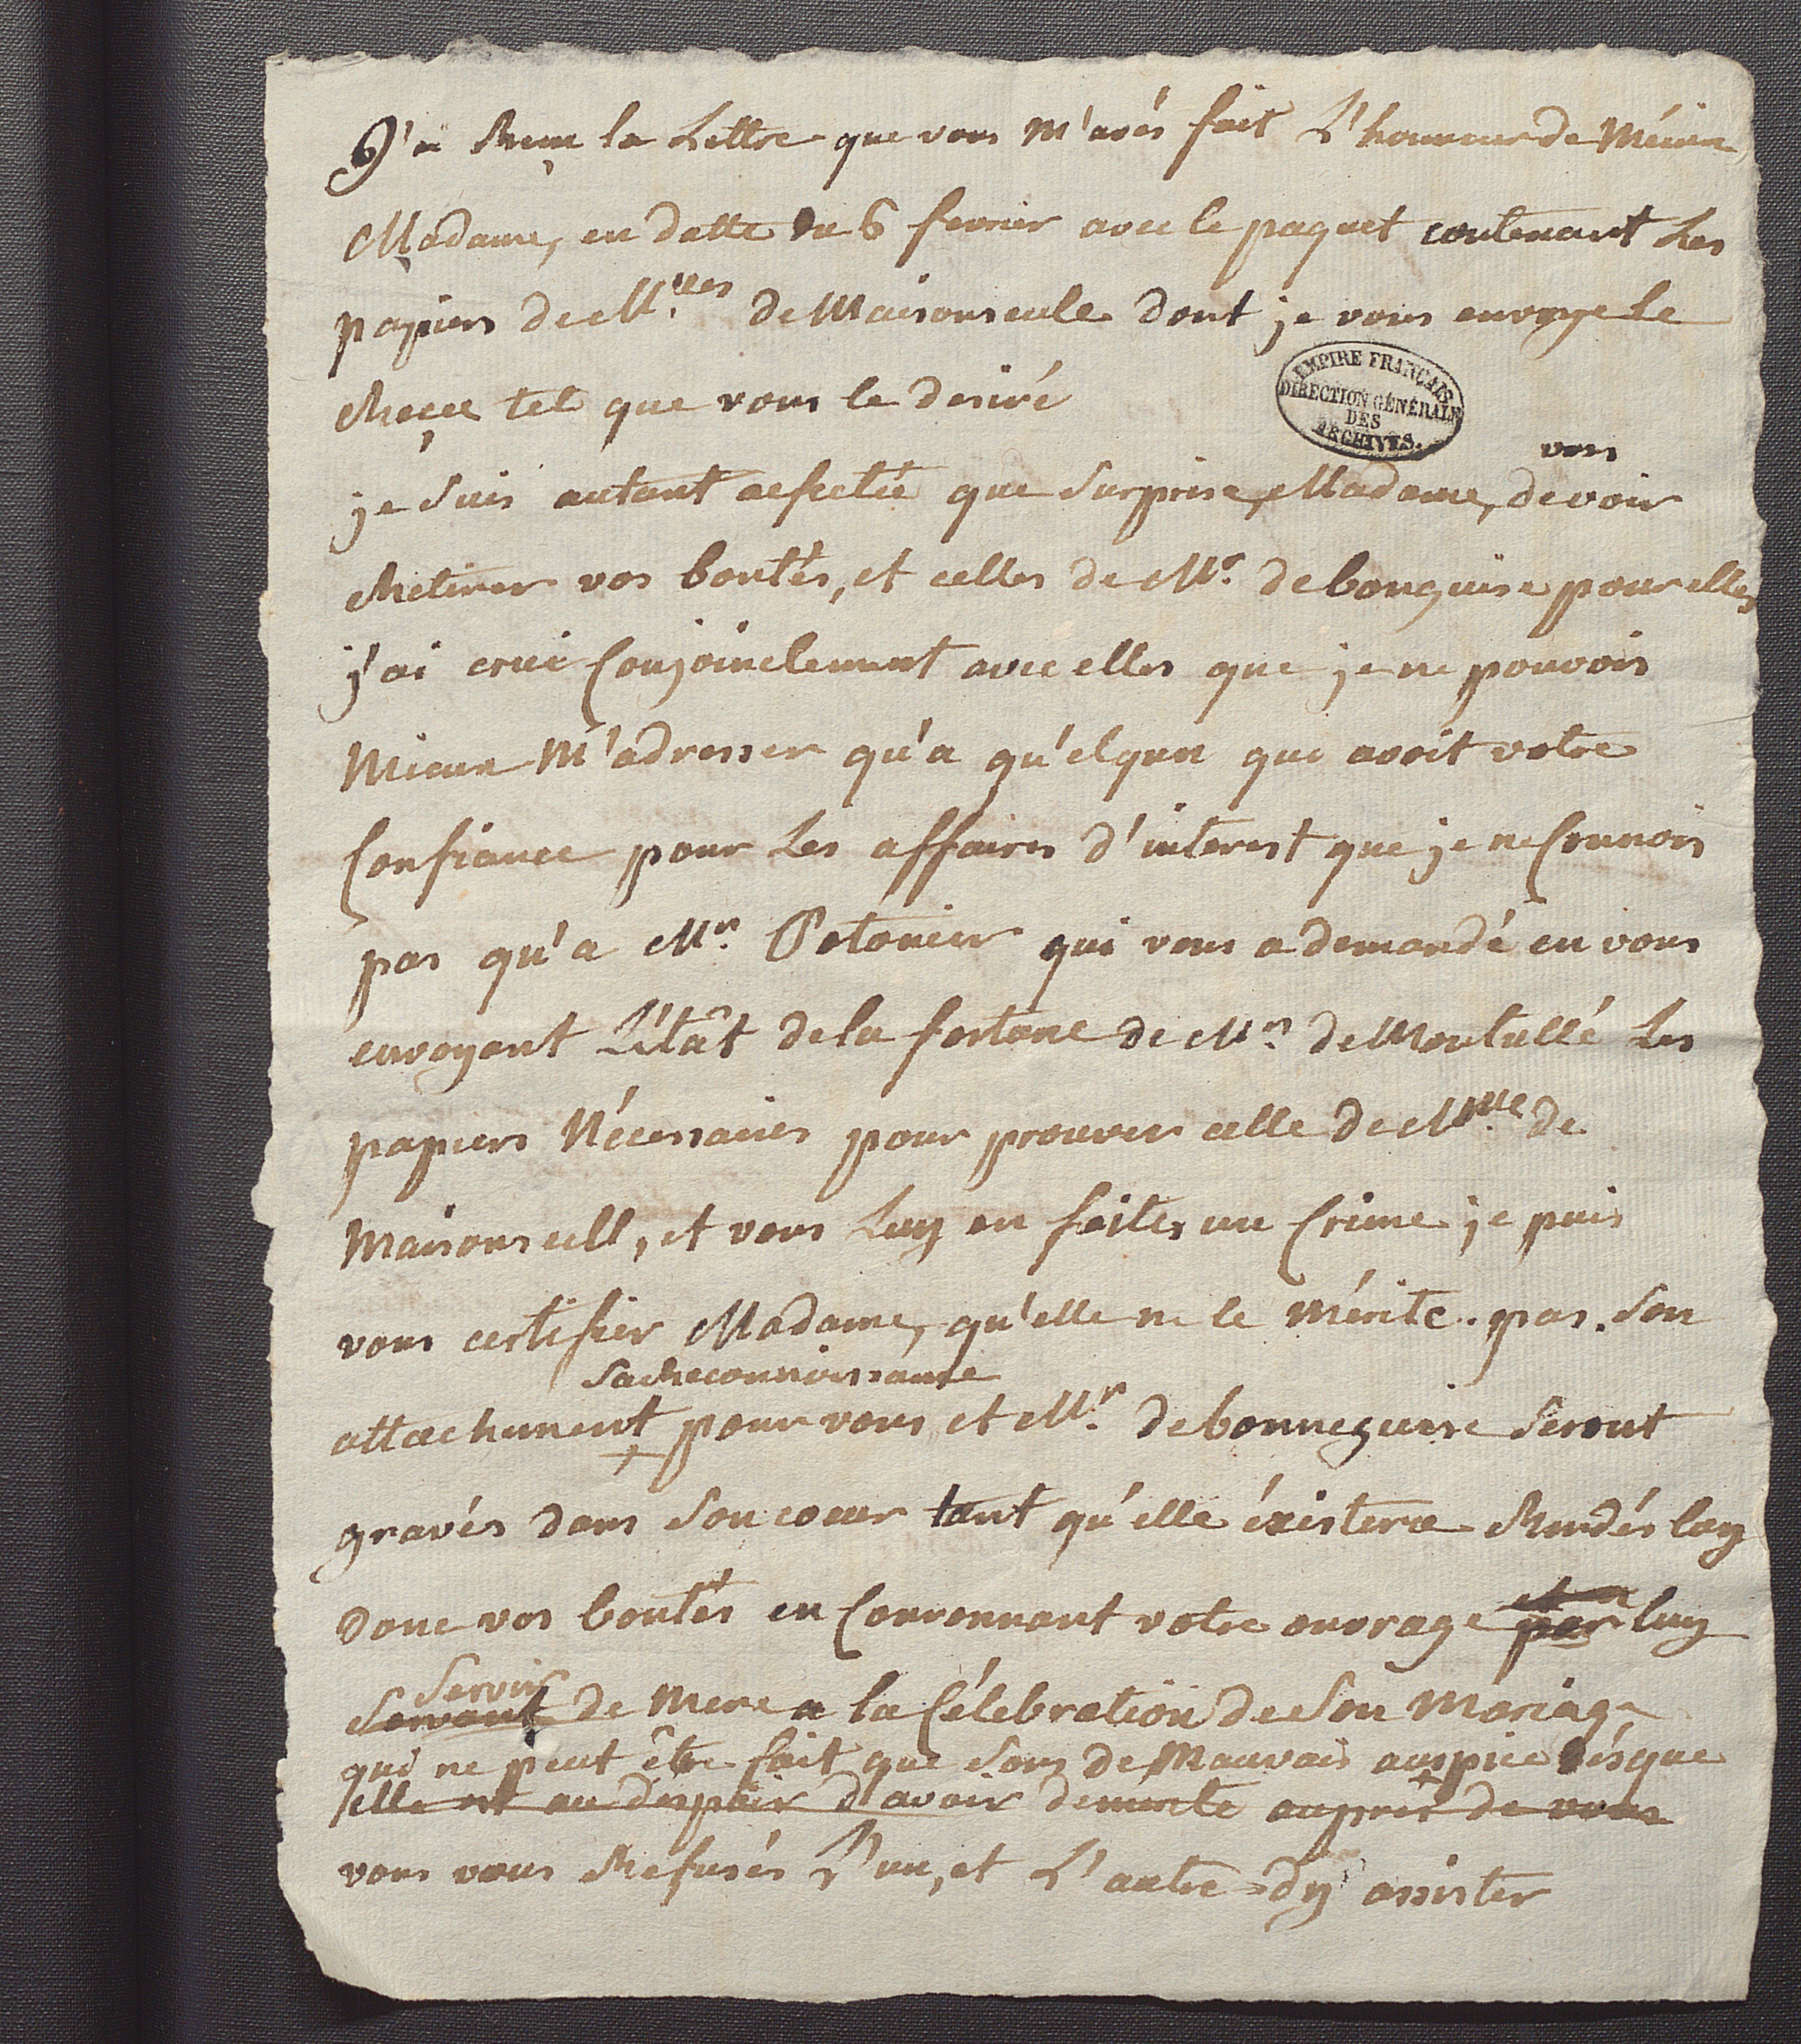 J'ai Reçu la Lettre que vous m'avés fait L'honneur de Mécrire
Madame, en datte du 6 fevrier avec le paquet contenant Les
papiers de M.lles de Maisonseule dont je vous envoye le
Reçu tel que vous le desiré
EMPIRE FRANÇAIS
DIRECTION GÉNÉRALE
DES
ARCHIVES.
vous
je suis autant affectée que Surprise, Madame, de voir
Retirer vos bontés, et celles de Mr. de bonguise pour elles
j'ai crüe Conjoinctement avec elles que je ne pouvois
Mieux M'adresser qu'a qu'elqun qui avoit votre
Confiance pour Les affaires d'interest que je ne Connois
pas qu'a Mr. Potonier qui vous a demandé en vous
envoyant L'étât de la fortune de Mr. de Montullé Les
papiers Nécessaires pour prouver celle de Melle de
Maisonsell, et vous Luy en faites un Crime je puis
vous certifier Madame, qu'elle ne le mérite. pas. Son
Sa Reconnoissance
attachement + pour vous et Mr. de bonneguise Seront
gravés dans Son coeur tant qu'elle éxistera Rendés luy
donc vos bontés en Couronnant votre ouvrage par luy
et en
Servir
Servant de Mere a la Célebration de Son Mariage
qui ne peut être fait que Sous de Mauvais auspice dés que
elle est au despoir d'avoir demerité auprès de vous
vous vous Refusés L'un, et L'autre d'y assister